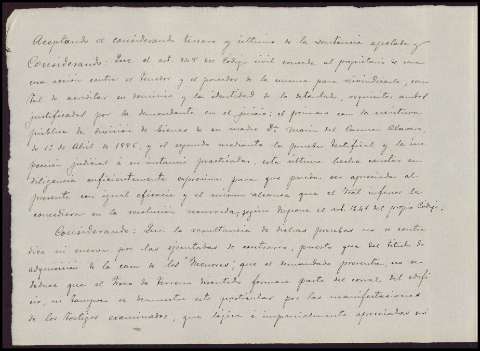 Aceptando el considerando tercero y último de la sentencia apelada y
Considerando: Que el art. 348 del Código civil concede al propietario de una
cosa acción contra el tenedor y el poseedor de la misma para reivindicarla, con
tal de acreditar su dominio y la identidad de la detentada, requisitos ambos
justificados por la demandante en el juicio; el primero con la escritura
pública de división de bienes de su madre Dª María del Carmen Álamo,
de 12 de Abril de 1886, y el segundo mediante la prueba testifical y la ins-
pección judicial a su instancia practicadas, esta última hecha constar en
diligencia suficientemente expresiva para que pueda ser apreciada al
presente con igual eficacia y el mismo alcance que el Tral inferior la
concediera en la resolución recurrida, según dispone el art. 1241 del propio Código.
Considerando: Que la resultancia de dichas pruebas no se contra-
dice ni enerva por las ejecutadas de contrario, puesto que del título de
adquisición de la casa de los "Menores", que el demandado presenta, no se
deduce que el trozo de terreno discutido formara parte del corral del edifi-
cio, ni tampoco se demuestra este particular por las manifestaciones
de los testigos examinados, que lógica e imparcialmente apreciadas no